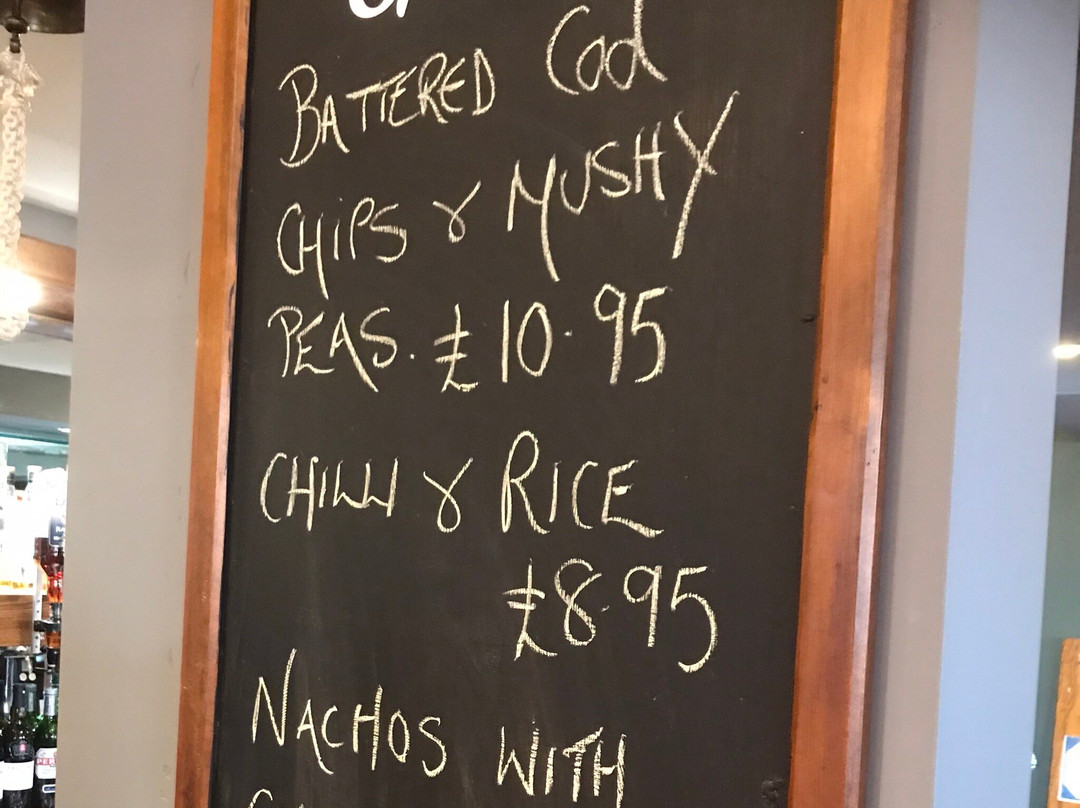 BATTERED Cod
CHiPS & MUSHY
PEAS. £10.95
CHILLI & RICE
£8.95
NACHOS WITH